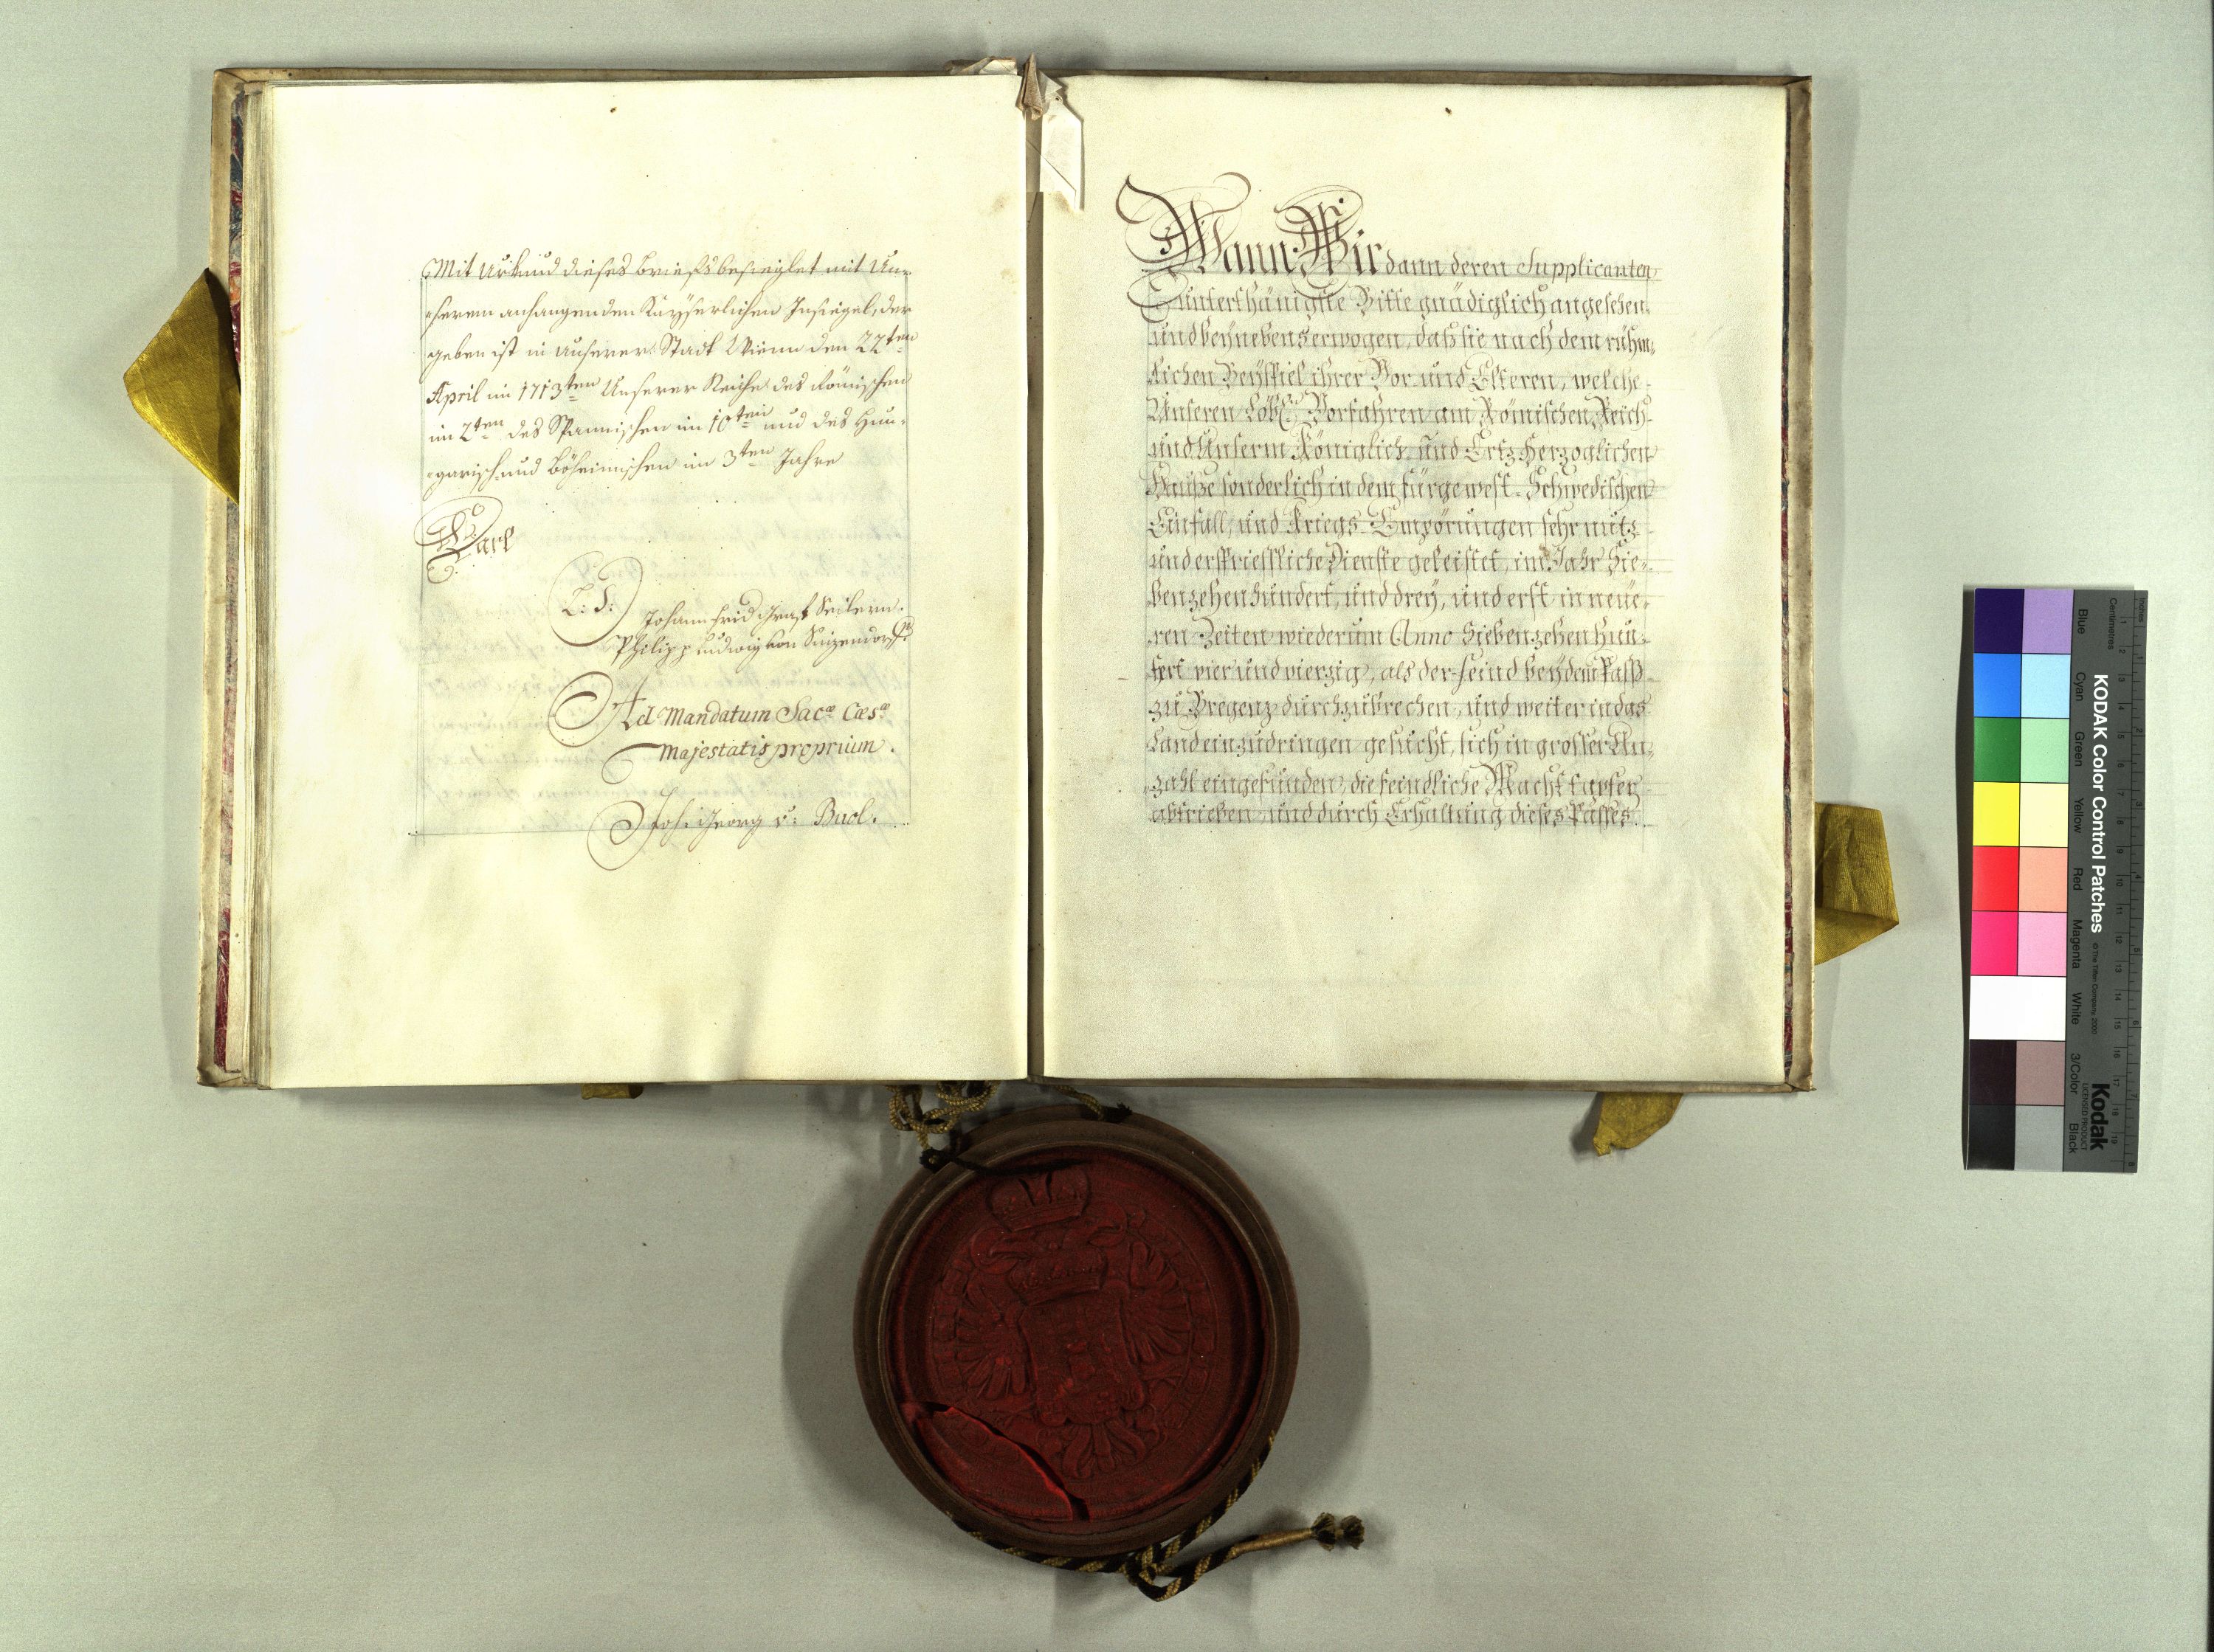 Mit Urkund dieses Brieffs besieglet mit Un-
serem anhangenden Kaÿserlichen Insiegel, der
geben ist in unserer Stadt Wienn den 22ten
April im 1713ten Unserer Reiche des Römischen
im 2ten des Spannischen im 10ten und des Hun-
garisch und Böheimischen im 3ten Jahre
Carl
L: S:
Johann Frid Graf Seilern.
Philipp Ludwig von Sinzendorff
Ad Mandatum Sacæ Cæsæ
Majestatis proprium.
Joh: Georg v: Buol.
Wann Wir dann deren Supplicanten
unterthänigste Bitte gnädiglich angesehen,
und beÿnebens erwogen, daß sie nach dem rühm-
lichen Beÿspiel ihrer Vor- und Elteren, welche
Unseren Löbl. Vorfahren am Römischen Reich
und Unserm Königlich- und Ertz-Herzoglichen
Hauße sonderlich in dem fürgewest-Schwedischen
Einfall, und Kriegs-Empörungen sehr nutz-
und erspriessliche Dienste geleistet, im Jahr Sie-
benzehenhundert, und dreÿ, und erst in neüe-
ren Zeiten wiederum Anno Siebenzehenhun-
dert vier und vierzig, als der Feind beÿ dem Pass
zu Bregenz durchzubrechen, und weiter in das
Land einzudringen gesucht, sich in grosser An-
zahl eingefunden, die feindliche Macht tapfer
abtrieben, und durch Erhaltung dieses Passes
KODAK Color Control Patches
© The Tiffen Company, 2000
Kodak
LICENSED PRODUCT
Inches
Centimetres
Blue
Cyan
Green
Yellow
Red
Magenta
White
3/Color
Black